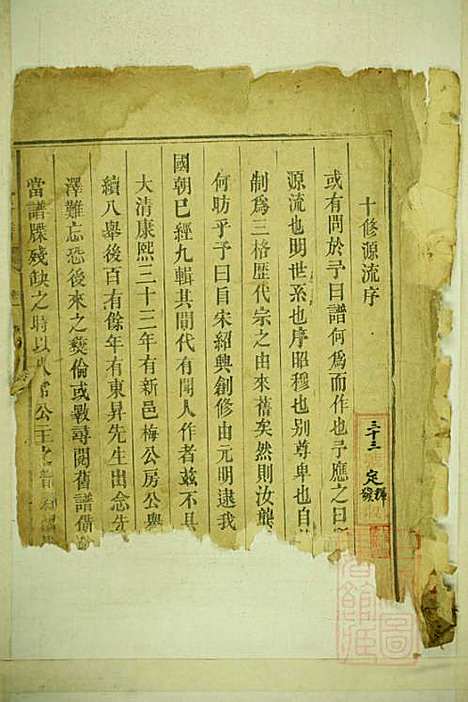 十修源流序
或有問於予曰譜何爲而作也予應之曰
源流也明世系也序昭穆也別尊卑也自
制爲三格歷代宗之由來舊矣然則汝龔
何昉乎予曰自宋紹興創修由元明逮我
國朝已經九輯其間代有聞人作者茲不具
大清康熙三十三年有新邑梅公房公舉
續八舉後百有餘年有東昇先生出念先
澤難忘恐後來之彝倫或斁尋閱舊譜備
當譜牒殘缺之時以
三十三
定